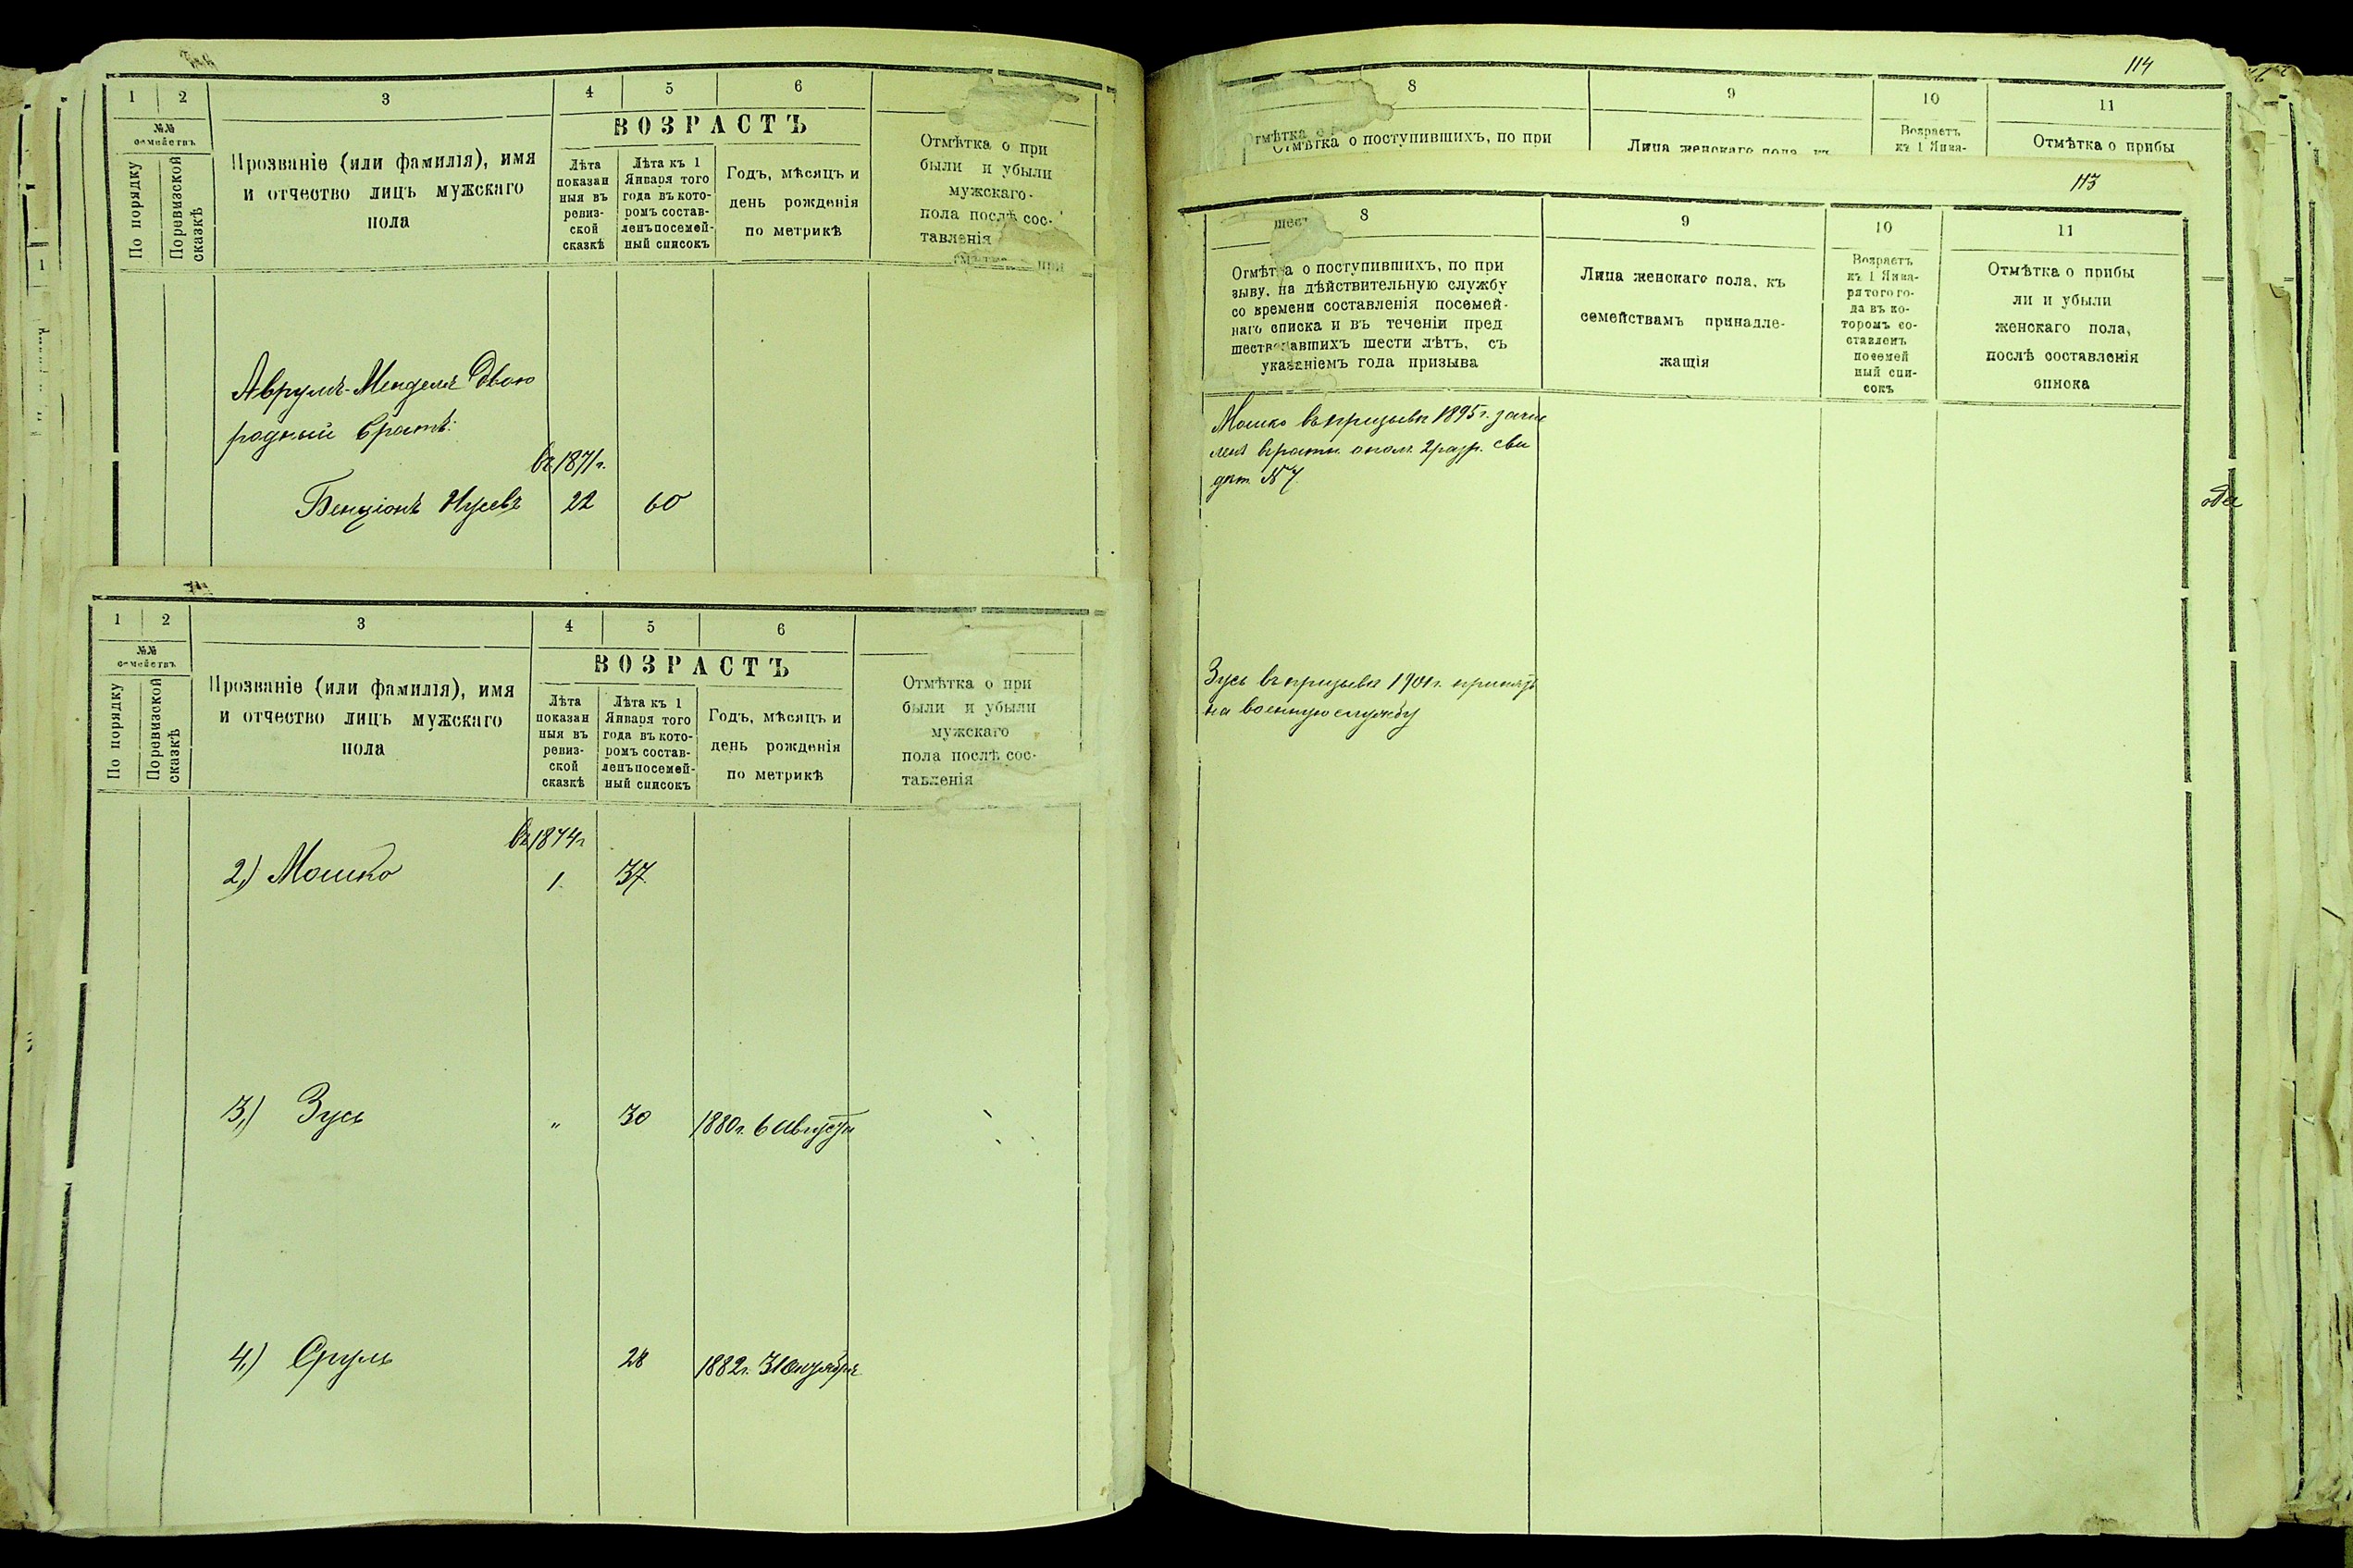 1 2 3 4 5 6
№№ семействъ
По порядку
Поревизской сказкѣ
Прозваніе (или фамилія), имя
и отчество лицъ мужскаго
пола
ВОЗРАСТЪ
Лѣта
показан
ныя въ
ревиз-
ской
сказкѣ
Лѣта къ 1
Января того
года въ кото-
ромъ состав-
ленъ посемей-
ный списокъ
Годъ, мѣсяцъ и
день рожденія
по метрикѣ
Отмѣтка о при
были и убыли
мужскаго
пола послѣ сос-
тавленія
Аврумъ-Менделя Двою
родный братъ:
въ 1871 г.
Бенціонъ Нусевъ 22 60
1 2 3 4 5 6
№№
семействъ
По порядку
Поревизской
сказкѣ
Прозваніе (или фамилія), имя
и отчество лицъ мужскаго
пола
ВОЗРАСТЪ
Лѣта
показан
ныя въ
ревиз-
ской
сказкѣ
Лѣта къ 1
Января того
года въ кото-
ромъ состав-
ленъ посемей-
ный списокъ
Годъ, мѣсяцъ и
день рожденія
по метрикѣ
Отмѣтка о при
были и убыли
мужскаго
пола послѣ сос-
тавленія
въ 1874 г
2) Мошко 1. 37
3,) Зусь " 30 1880 г. 6 Августа
4,) Сруль 28 1882 г. 31 Октября
114
8 9 10 11
Отмѣтка о поступившихъ, по при
Лица женскаго пола, къ
Возрастъ
къ 1 Янва-
Отмѣтка о прибы
113
8 9 10 11
Отмѣтка о поступившихъ, по при
зыву, на дѣйствительную службу
со времени составленія посемей-
наго списка и въ теченіи пред
шествовавшихъ шести лѣтъ, съ
указаніемъ года призыва
Лица женскаго пола, къ
семействамъ принадле-
жащія
Возрастъ
къ 1 Янва-
ря того го-
да въ ко-
торомъ со-
ставленъ
посемей
ный спи-
сокъ
Отмѣтка о прибы
ли и убыли
женскаго пола,
послѣ составленія
списка
Мошко въ призывъ 1895 г. зачис
ленъ въ ратн. ополч. 2 разр. сви
дѣт. № 7
Зусь въ призывъ 1901 г. принятъ
на военную службу